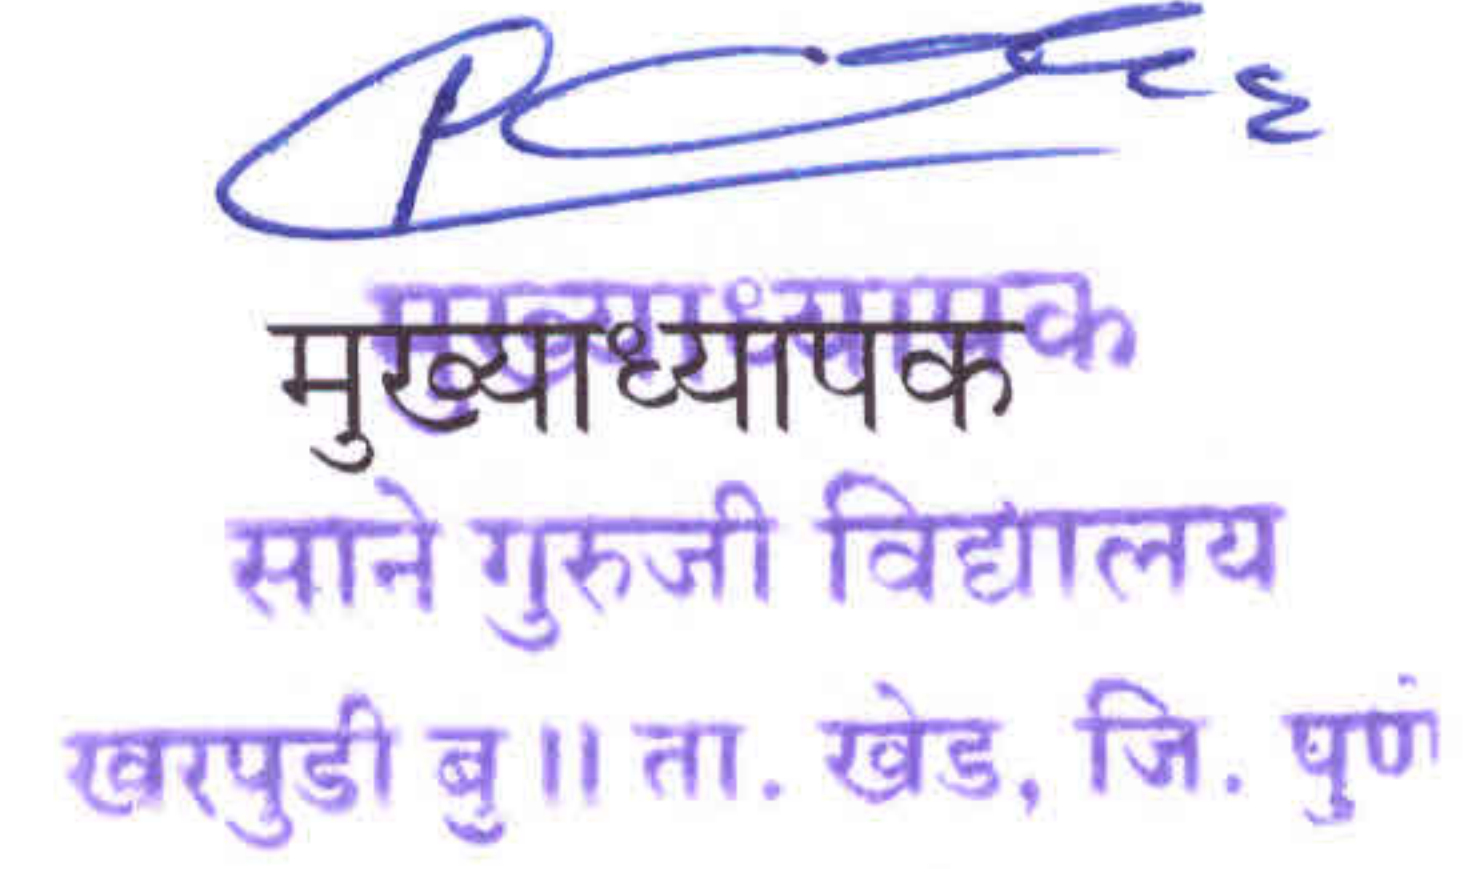 मुख्याध्यापक
मुख्याध्यापक
साने गुरुजी विद्यालय
खरपुडी बु॥ ता. खेड, जि. पुणे